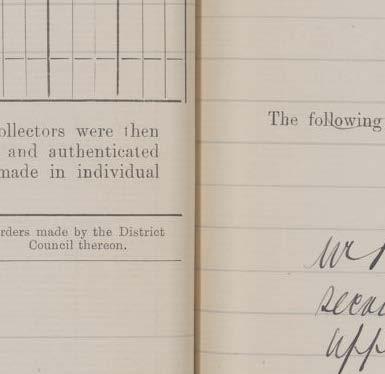 ollectors were then
and authenticated
made in individual
rders made by the District
Council thereon.
The following